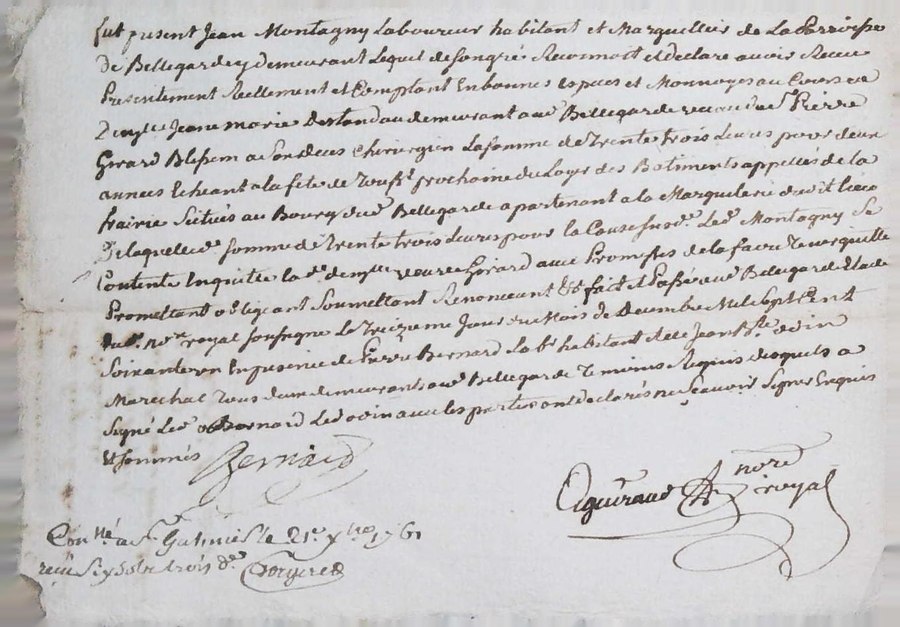 fut present Jean Montagny Laboureur habitant et Marguellier de La Parroisse
de Bellegarde y demeurant Lequel de son gré Reconnoit et declare avoir Receu
Presentement Reellement et Comptant En bonnes espces et Monnoyes au Cours de
Jeanne marie demeurant aud Bellegarde Sr Pierre
Girard chirurgien La somme de Trente trois Livres pour deux
années Echeant a la fete de prochaine du Loyer des Batiments appellés de la
frairie Scitués au Bourg dud Bellegarde apartenant a la Marguelerie dud Lieu
De laquelle de somme de Trente trois Livres pour la Cause susd. Led Montagny Se
Contente En quitte la de veuve Girard avec Promesse de la faire Tenir quitte
Promettant obligeant Soumettant Renonceant &c fait et Passé aud Bellegarde Etude
du no.re royal soussigne Le Treizieme Jour du Mois de Decembre Mil Sept Cent
Soixante un En presence de Pierre Bernard La.br habitant et de Jean odin
Marechal Tous deux demeurants aud Bellegarde Temoins Requis desquels a
Signé Led Bernard Led odin avec les parties ont declarés ne Scavoir Signer Enquis
Et Sommés
Bernard
nore
royal
Con.llé a St Galmier le 21e xbre 1761
reçu Six sols trois d.ers